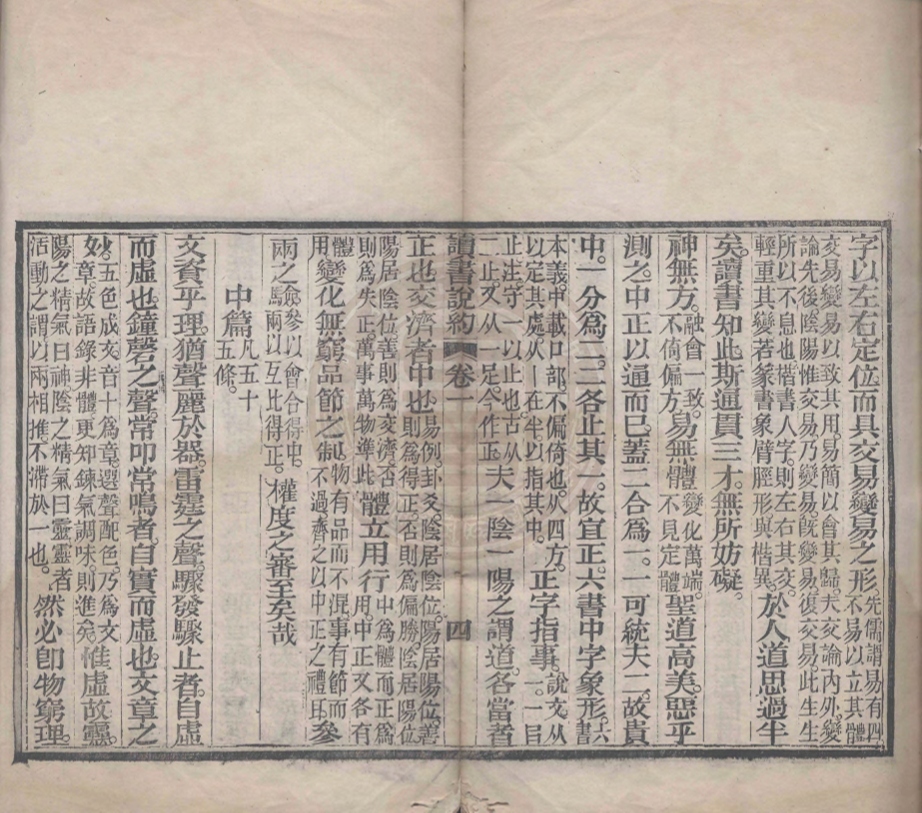 字以左右定位。而具交易變易之形先儒謂易有四不易以立其體
交易變易以致其用易簡以會其歸夫交論內外變
論先後陰陽惟交易乃變易旣變易復交易。此生生
所以不息也楷書人字則左右其交。輕重其變若篆書象臂脛形與楷異。於人道思過半
矣。讀書知此斯通貫三才。無所妨礙。
神無方。融會一致。不倚偏方易無體變化萬端。不見定體聖道高美。惡乎
測之。中正以通而已。蓋二合爲一。一可統夫二。故貴
中。一分爲二。二各止其一。故宜正。六書中字象形。六書
本義。中載口部。不偏倚也。从四方。以定其處。从丨在半。以指其中。正字指事。說文从一。一㠯
止注。守一以止也。古从二止又从一足今作正夫一陰一陽之謂道。各當者
讀書說約 卷一 四
正也交濟者中也易例。卦爻。陰居陰位。陽居陽位。善則爲得正否則爲偏勝。陰居陽位
陽居陰位善則爲交濟否則爲失正。萬事萬物準此體立用行中爲體而正爲用。中正又各有
體用變化無窮。品節之制。物有品而不混事有節而不過齊之以中正之禮耳參
兩之驗參以會合得中。驗兩以互比得正。權度之審至矣哉
中篇凡五十五條。
文資乎理。猶聲麗於器。雷霆之聲。驟發驟止者。自虛
而虛也。鐘磬之聲。常叩常鳴者。自實而虛也。文章之
妙。五色成文。音十爲章。選聲配色。乃爲文章。故語錄非體更知鍊氣調味。則進矣。惟虛故靈。
陽之精氣曰神陰之精氣曰靈靈者活動之謂以兩相推。不滯於一也。然必卽物窮理。